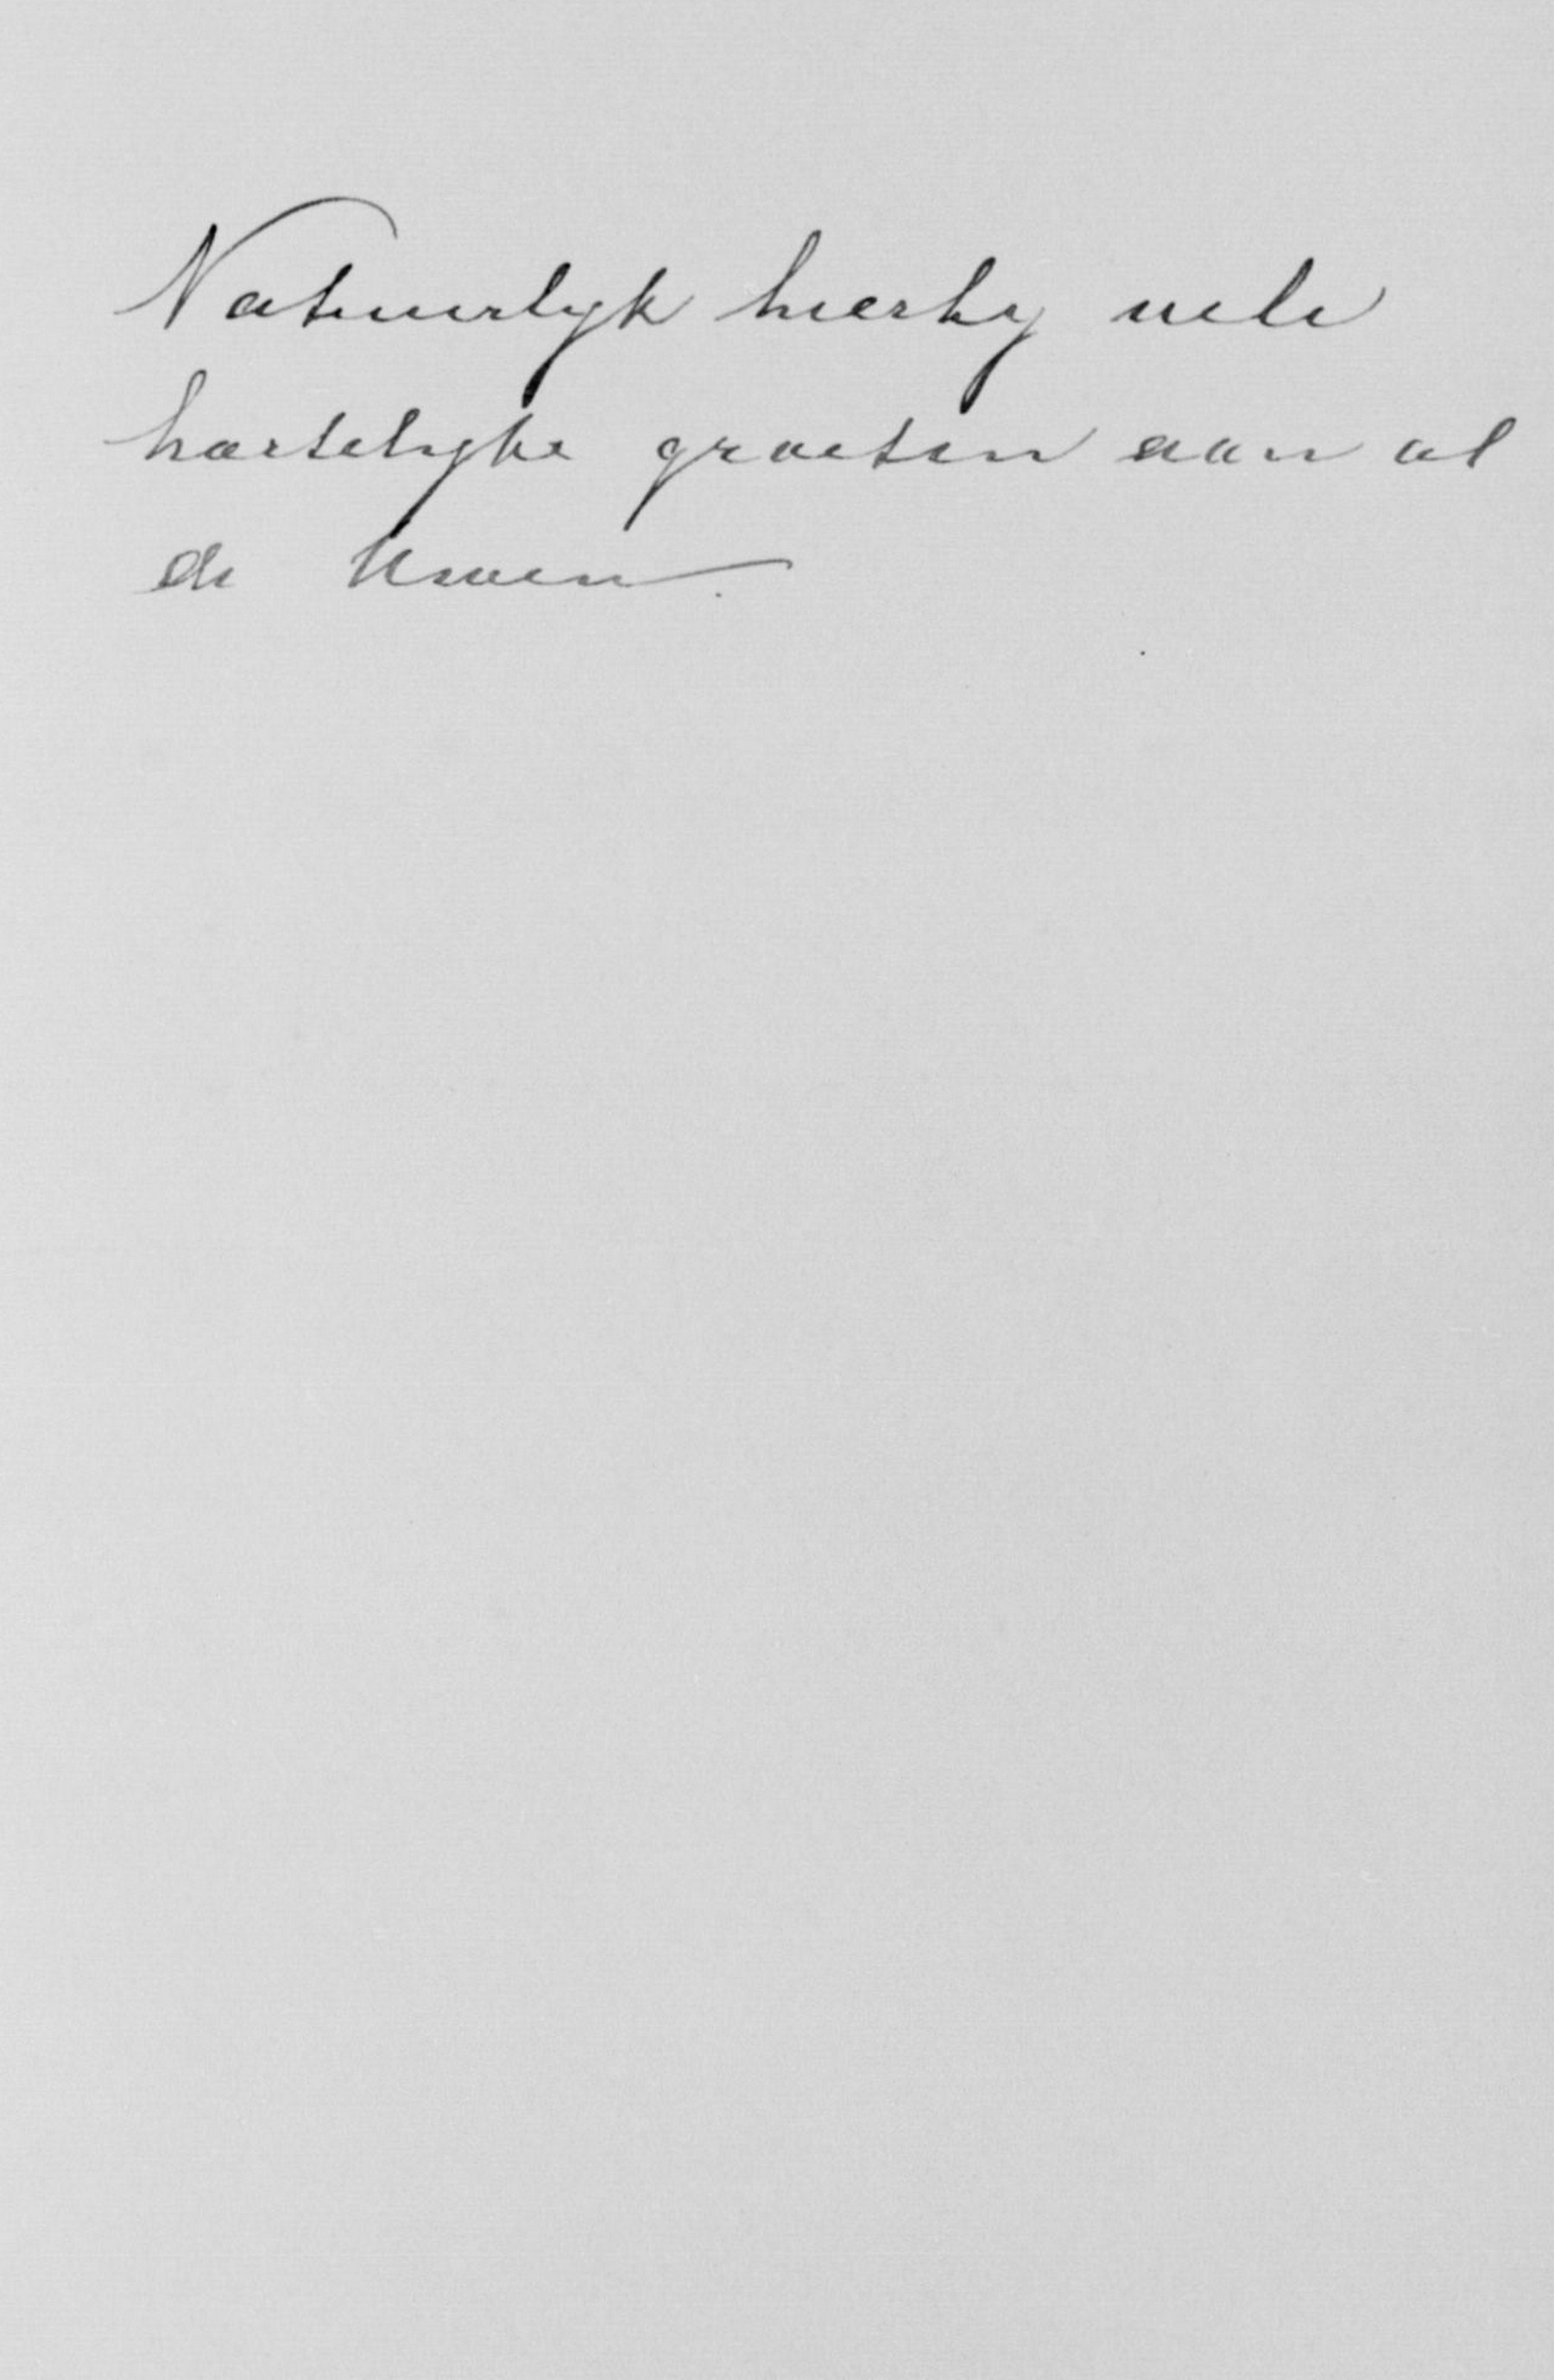 Natuurlyk hierby vele
hartelyke groeten aan al
de Uwen.